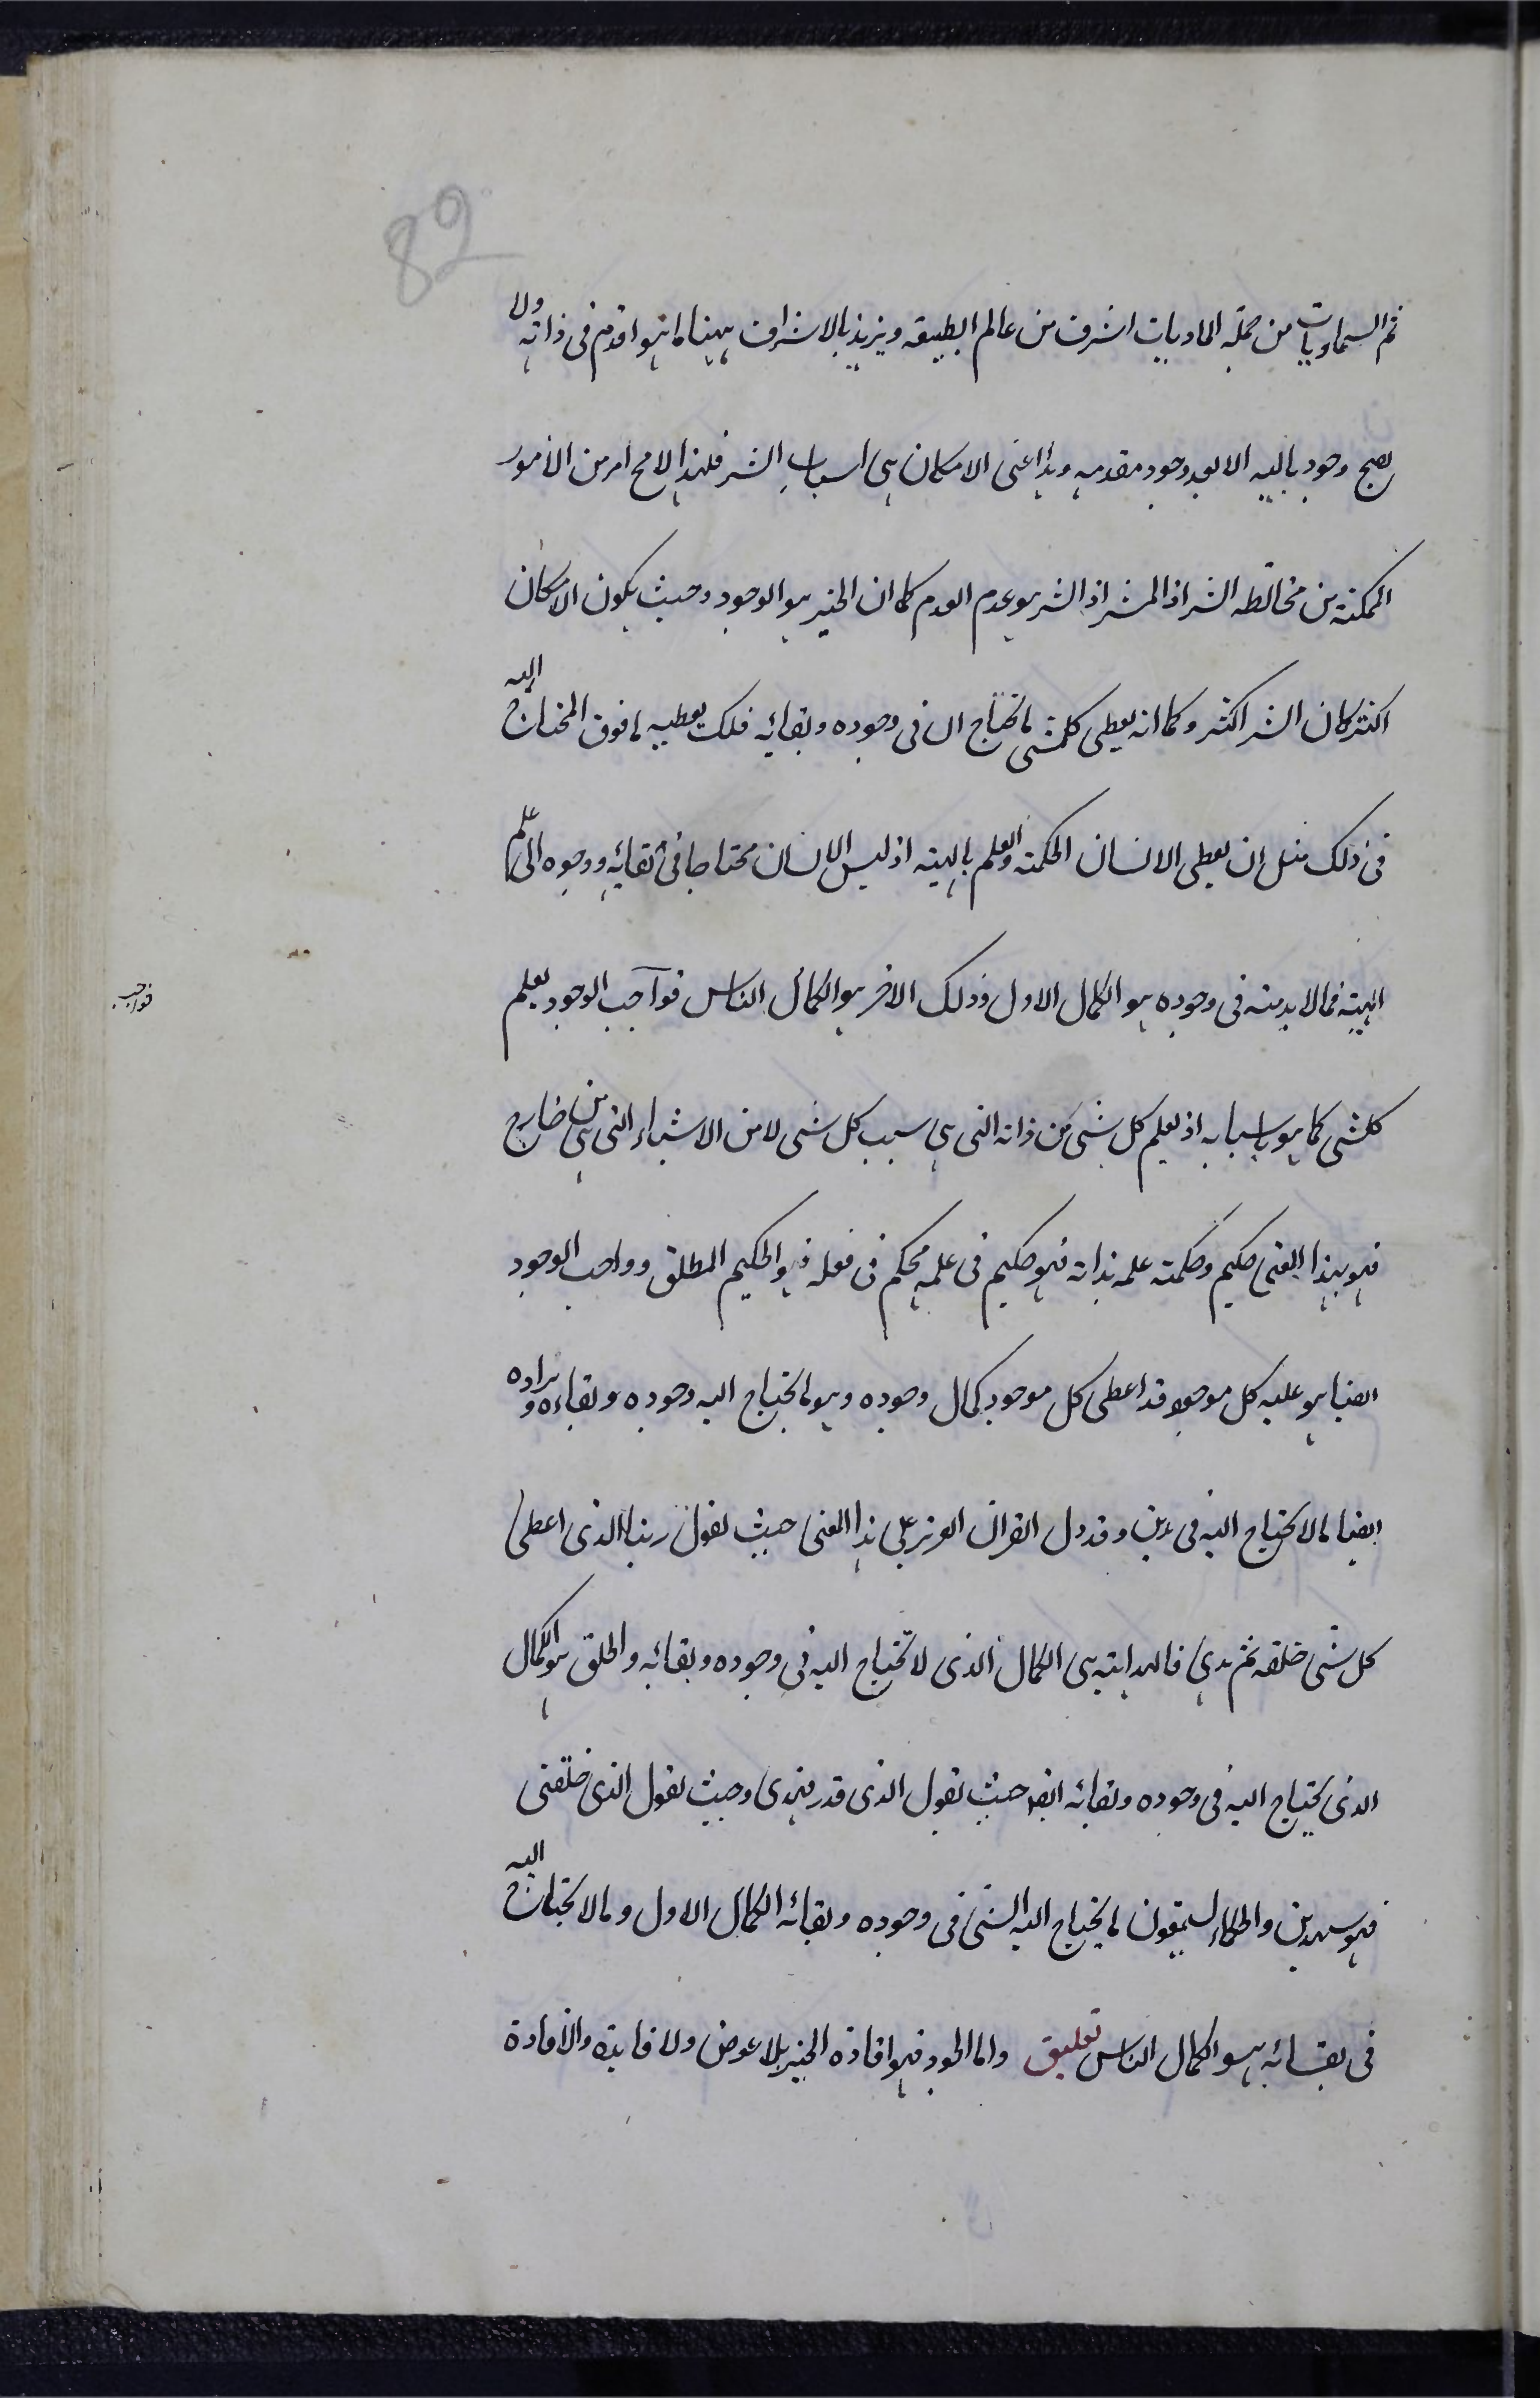 82
ثم السماويات من جملة الماديات اشرف من عالم الطبيعه ويزيد بالاشراف ههنا ما هو اقدم فى ذاته ولا
يصح وجود تاليه الا بعد وجود مقدمه وهذا اعنى الامكان هى اسباب الشر فلهذا لامح امر من الامور
الممكنة من مخالطة الشر اذ المشر اذ الشر هو عدم العدم كما ان الخير هو الوجود وحيث يكون الامكان
اكثر كان الشر اكثر وكما انه يعطى كلشى ما يحتاج ال فى وجوده وبقائه فلك يعطيه ما فوق المحتاج اليه
فى ذلك مثل ان يعطى الانسان الحكمة والعلم بالهيئه اذ ليس الانسان محتاجا فى بقائه ووجوه الى علم
الهيئة فما لا بد منه فى وجوده هو الكمال الاول وذلك الاخر هو الكمال الناس فواجب الوجود يعلم
فواجب
كلشى كما هو باسبابه اذ يعلم كل شى من ذاته التى هى سبب كل شى لا من الاشياء التى هى من خارج
فهو بهذا المعنى حكيم وحكمته علمه بذاته فهو حكيم فى علمه محكم فى فعله فهو الحكيم المطلق وواجب الوجود
ايضا هو عليه كل موجود قد اعطى كل موجود كمال وجوده وهو ما يحتاج اليه وجوده وبقاءه وزاده
ايضا ما لا يحتاج اليه فى هذين وقد دل القران العزيز على هذا المعنى حيث يقول ربنا الذى اعطى
كل شى خلقه ثم هدى فالهداية هى الكمال الذى لا يحتاج اليه فى وجوده وبقائه والخلق هو الكمال
الذى يحتاج اليه فى وجوده وبقائه ايضا حيث يقول الذى قدر فهدى وحيث يقول الذى خلقنى
فهو يهدين والحكماء يسمون ما يحتاج اليه الشى فى وجوده وبقائه الكمال الاول وما لا يحتاج اليه
فى بقائه هو الكمال الناس تعليق واما الجود فهو افادة الخير بلا عوض ولا فايدة والافادة